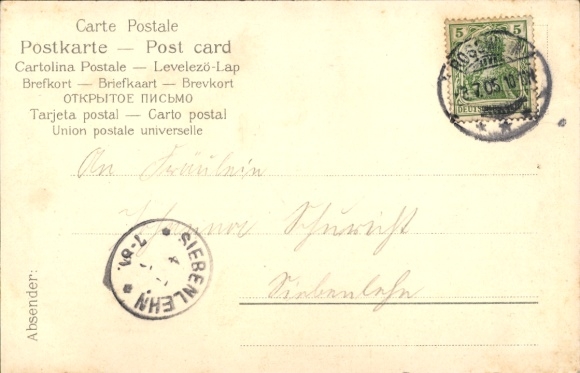 Carte Postale
Postkarte — Post card
Cartolina Postale — Levelező-Lap
Brefkort — Briefkaart — Brevkort
ОТКРЫТОЕ ПИСЬМО
Tarjeta postal — Carto postal
Union postale universelle
5 5
An Fräulein
Johanna Schuricht
Siebenlehn
SIEBENLEHN
Absender: